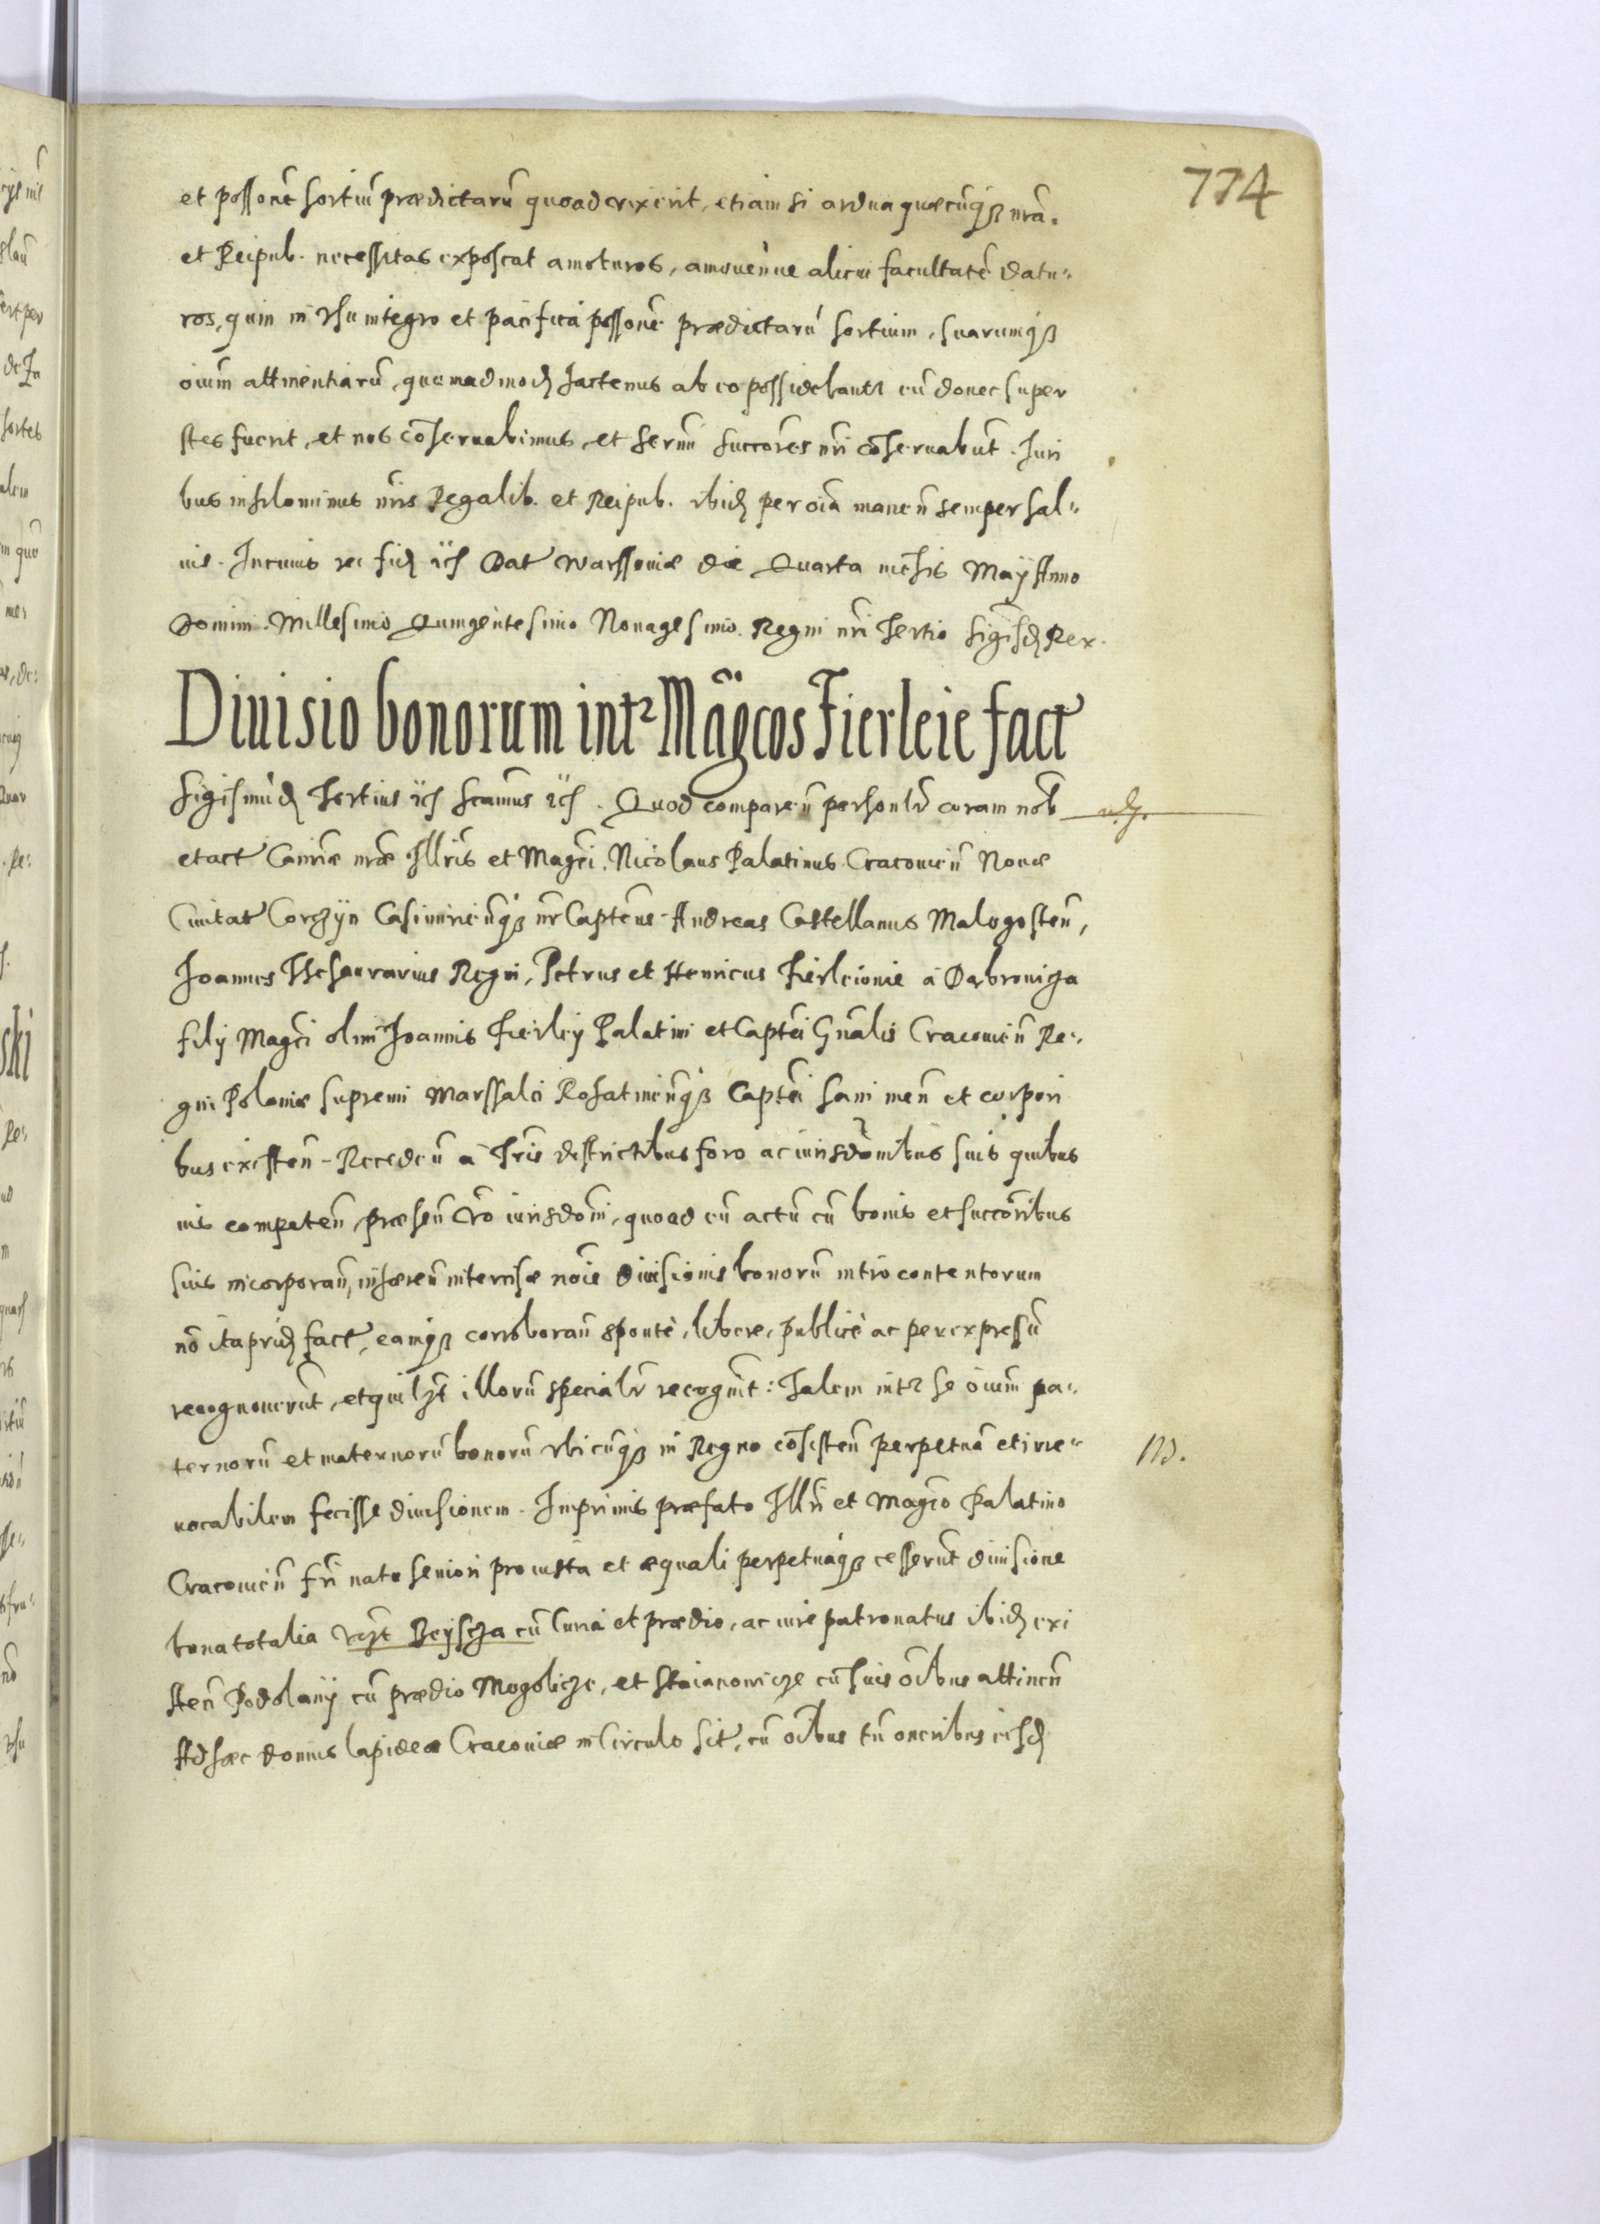 774
et possone sortiu prædictaru quoad vixerit, etiam si ardua quæcuqz nra.
et Reipub. necessitas exposcat amoturos, amouenue alicui facultate datu-
ros, quin in vsu integro et pacifica possone prædictaru sortium, suarumqz
oium attinentiaru, quemadmod hactenus ab eo possidebantr cu donec super
stes fuerit, et nos coseruabimus, et sermi succores nri coseruabut. Juri
bus nihilominus nris Regalib. et Reipub. ibid per oia manen semper sal-
uis. Incuius rei fid ich Dat Warssouiæ die Quarta mesis Maij Anno
Domini. Millesimo Quingentesimo Nonagesimo. Regni nri Tertio Sigisd Rex.
Diuisio bonorum intr Magcos Fierleie fact
Sigismud Tertius ich scamus ich. Quod comparen personlr coram nob
et act Canriæ nræ Illris et Magci. Nicolaus Palatinus Cracouien Nouæ
Ciuitat Corczijn Casimirienqz nr Captens. Andreas Castellanus Malogosten,
Joannes Thesaurarius Regni, Petrus et Henricus Fierleiouie a Dąbrouicza
filij Magci olim Joannis Fierleij Palatini et Captei Gnalis Cracouien Re-
gni Poloniæ supremi Marssalci Rohatinenqz Captei sani men et corpori
bus existen. Receden a Tris districtibus foro ac iurisdonibus suis quibus
uis competen, præsen vro iurisdoni, quoad cu actu cu bonis et succoribus
suis incorporan, inhæren interrisæ noie diuisionis bonoru intro contentorum
no ita prid fact, eamqz corroboran sponte, libere, publice ac per expressu
recognouerut, et quilzt illoru specialr recognit: Talem intr se oium pa-
ternoru et maternoru bonoru vbicuqz in Regno cosisten perpetua et irre-
nd.
uocabilem fecisse diuisionem. Imprimis præfato Illri et Magco Palatino
Cracouien fri natu seniori pro iusta et æquali perpetuaqz cesserut diuisione
bona totalia vczt Beijscza cu Curia et prædio, ac iure patronatus ibid exi
sten Podolanij cu prædio Mogolicze, et Stoianowicze cu suis oibus attinen
Ad hæc domus lapidea Cracouiæ in Circulo sit, cu oibus tn oneribus eisd